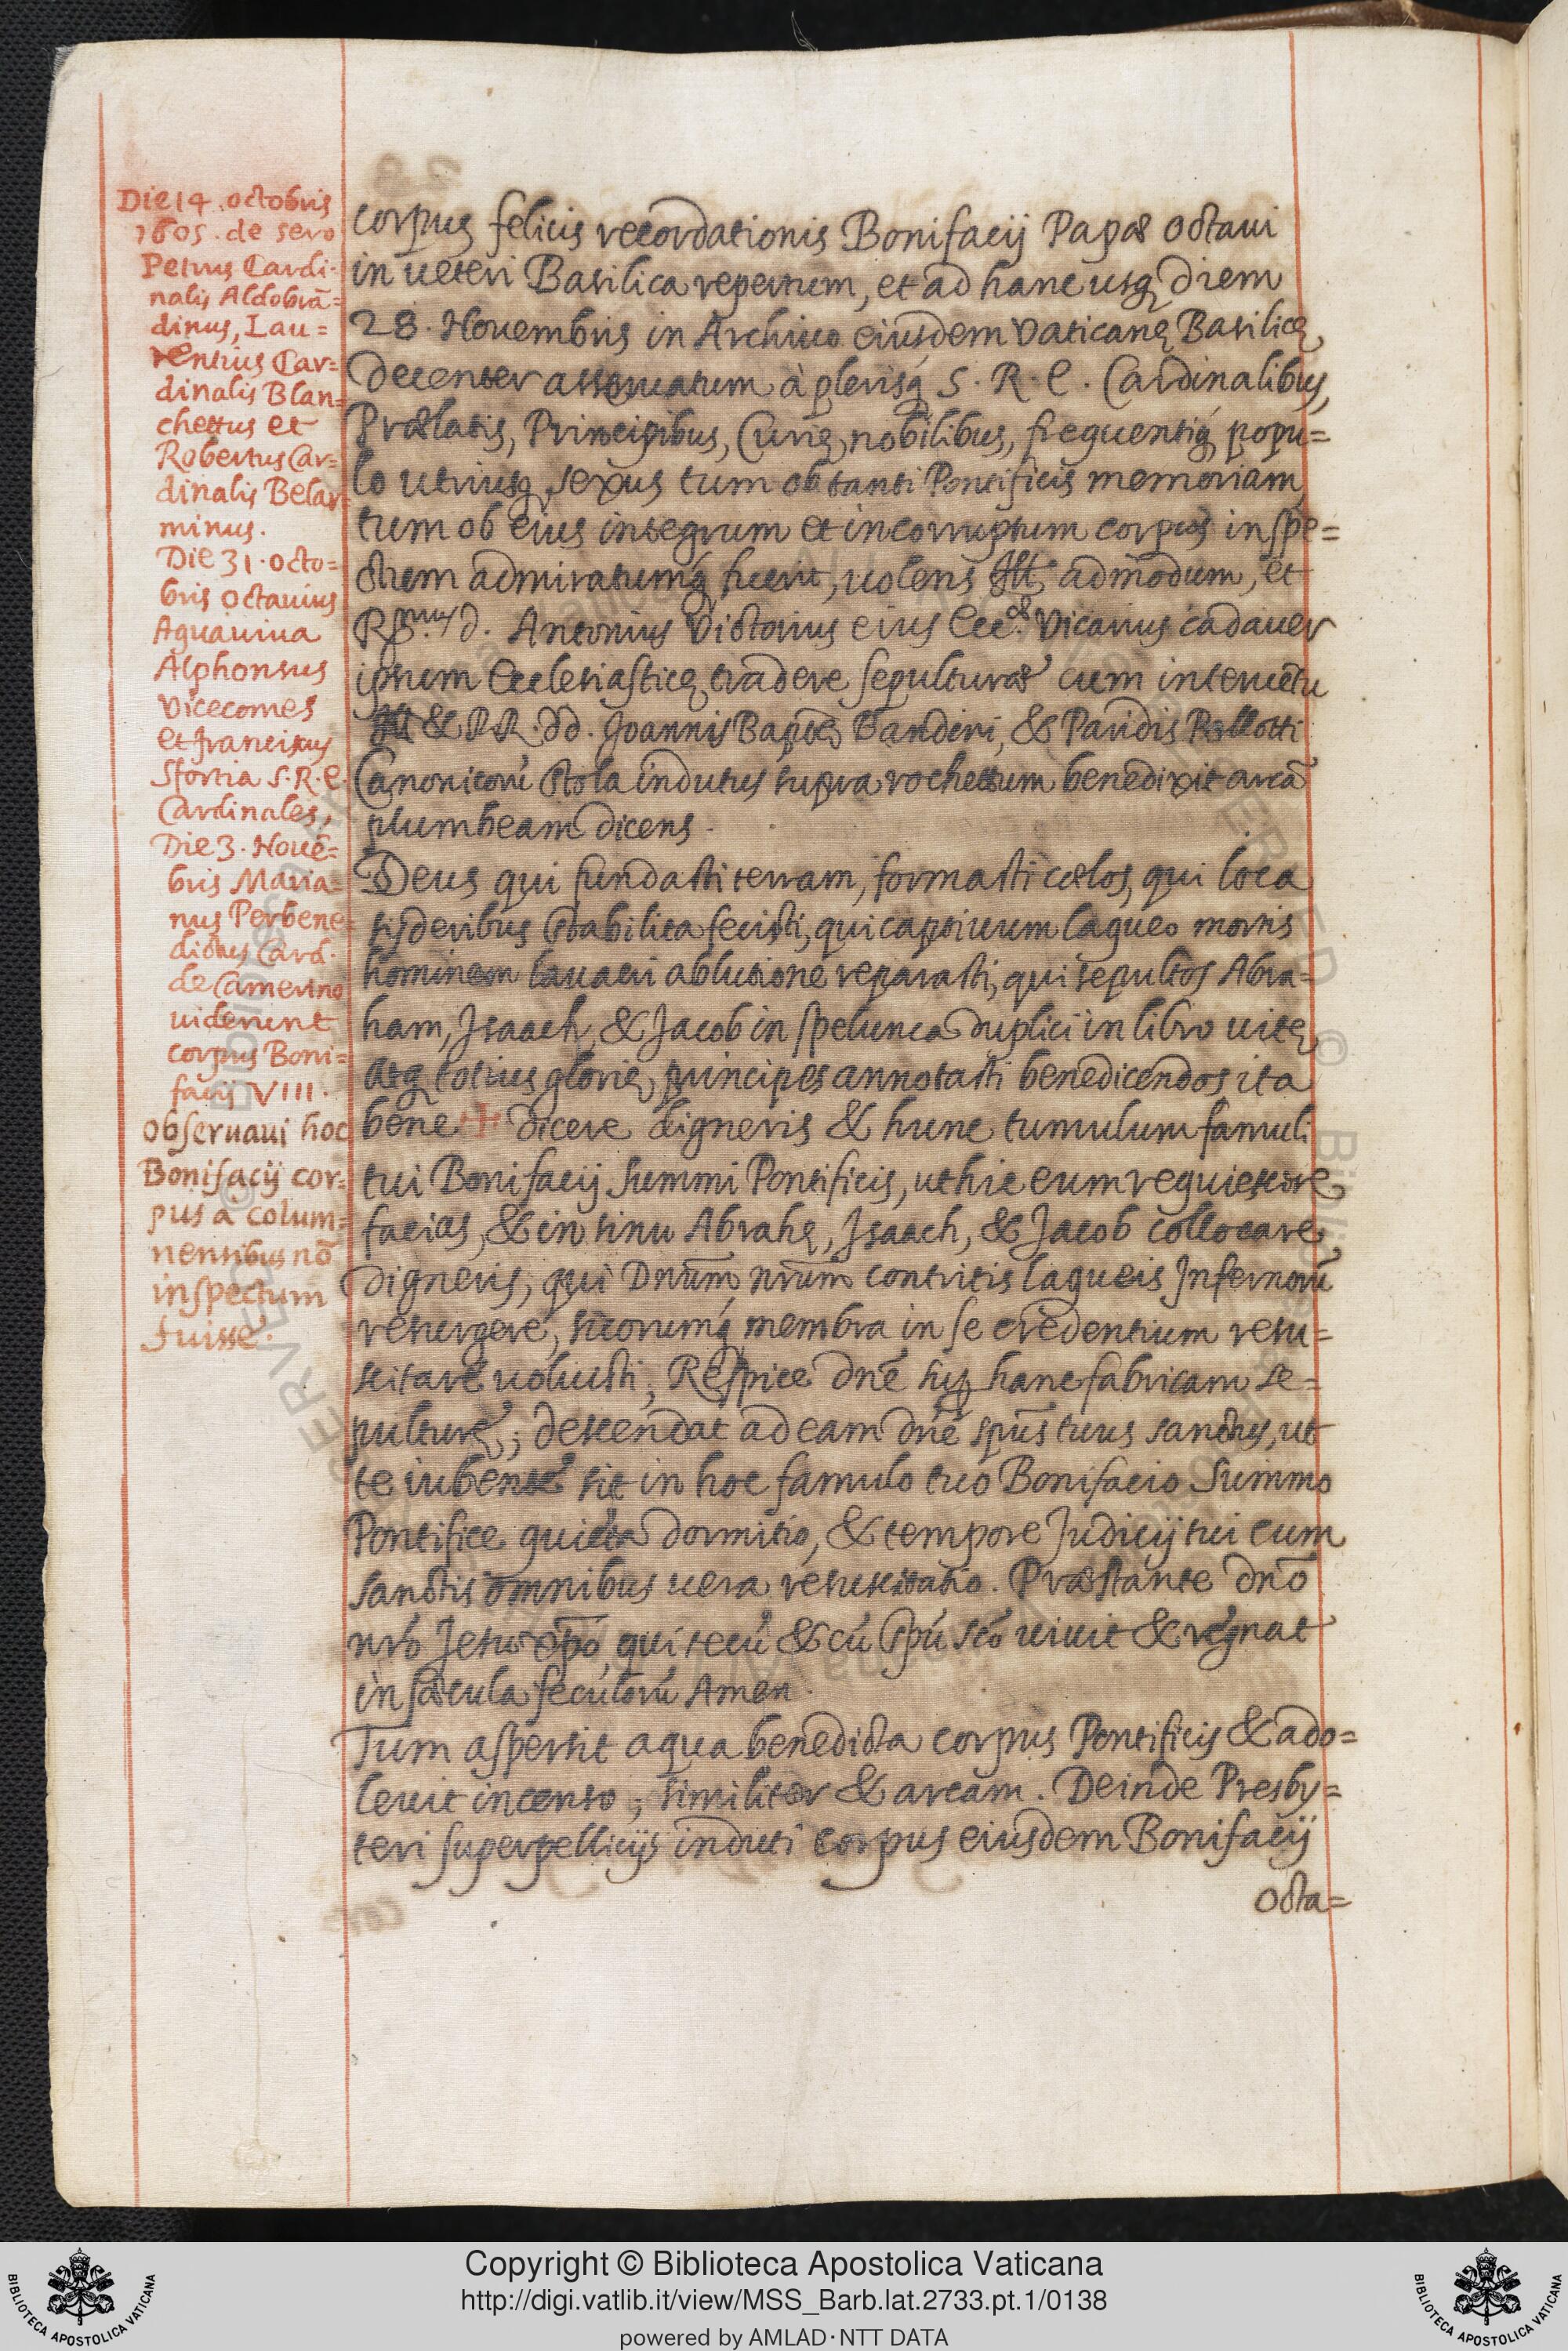 Die 14. octobris
1605. de sero
Petrus Cardi-
nalis Aldobrā=
dinus, Lau=
rentius Car=
dinalis Blan=
chettus et
Robertus Car=
dinalis Belar=
minus.
Die 31. octo=
bris octauius
Aquauiua
Alphonsus
Vicecomes
et franciscus
Sfortia S. R. E.
Cardinales,
Die 3. Nouē-
bris Maria=
nus Perbene=
dictus Card.
de Camerino
uiderunt
corpus Boni=
facij VIII.
obseruaui hoc
Bonifacij cor=
pus a colum=
nensibus nō
inspectum
fuisse.
corpus felicis recordationis Bonifacij Papæ octaui
in ueteri Basilica repertum, et ad hanc usq diem
28. Nouembris in Archiuo eiusdem Vaticanę Basilicę
decenter asseruatum à plerisq S. R. E. Cardinalibus,
Prælatis, Principibus, Curię nobilibus, frequentiq popu=
lo utriusq sexus tum ob tanti Pontificis memoriam
tum ob eius integrum et incorruptum corpus inspe=
ctum admiratumq fuerit, uolens Ill. admodum, et
R.mus d. Antonius Victorius eius Eccæ. Vicarius cadauer
ipsum Ecclesiasticę tradere sepulturæ cum interuētu
Ill & RR. dd. Joannis Bapᵗę Bandini, & Paridis Pallotti
Canonicorū stola indutus supra rochettum benedixit arcā
plumbeam dicens.
Deus qui fundasti terram, formasti cœlos, qui loca
sijderibus stabilita fecisti, qui captiuum laqueo mortis
hominem lauacri ablutione reparasti, qui sepultos Abra=
ham, Isaach, & Jacob in spelunca duplici in libro uitę
atq totius glorię principes annotasti benedicendos ita
bene ✠ dicere digneris & hunc tumulum famuli
tui Bonifacij Summi Pontificis, ut hic eum requiescere
facias, & in sinu Abrahę, Isaach, & Jacob collocare
digneris, qui Dnūm nrūm contritis laqueis Infernorū
resurgere, suorumq membra in se credentium resu=
scitare uoluisti; Respice dnē sup hanc fabricam se=
pulturę; descendat ad eam dnē spūs tuus sanctus, ut
te iubente sit in hoc famulo tuo Bonifacio Summo
Pontifice quieta dormitio, & tempore Judicij tui cum
sanctis omnibus uera resuscitatio. Præstante dnō
nrō Jesu xpō, qui tecū & cū spū scō uiuit & regnat
in sæcula seculorū Amen.
Tum aspersit aqua benedicta corpus Pontificis & ado=
leuit incenso, similiter & arcam. Deinde Presby=
teri superpellicijs induti corpus eiusdem Bonifacij
octa=
Copyright © Biblioteca Apostolica Vaticana
http://digi.vatlib.it/view/MSS_Barb.lat.2733.pt.1/0138
powered by AMLAD·NTT DATA
BIBLIOTECA APOSTOLICA VATICANA
BIBLIOTECA APOSTOLICA VATICANA